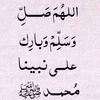 اللهم صَلِّ
وَسَلِّمْ وَبَارِك
على نبينا
محمد ﷺ